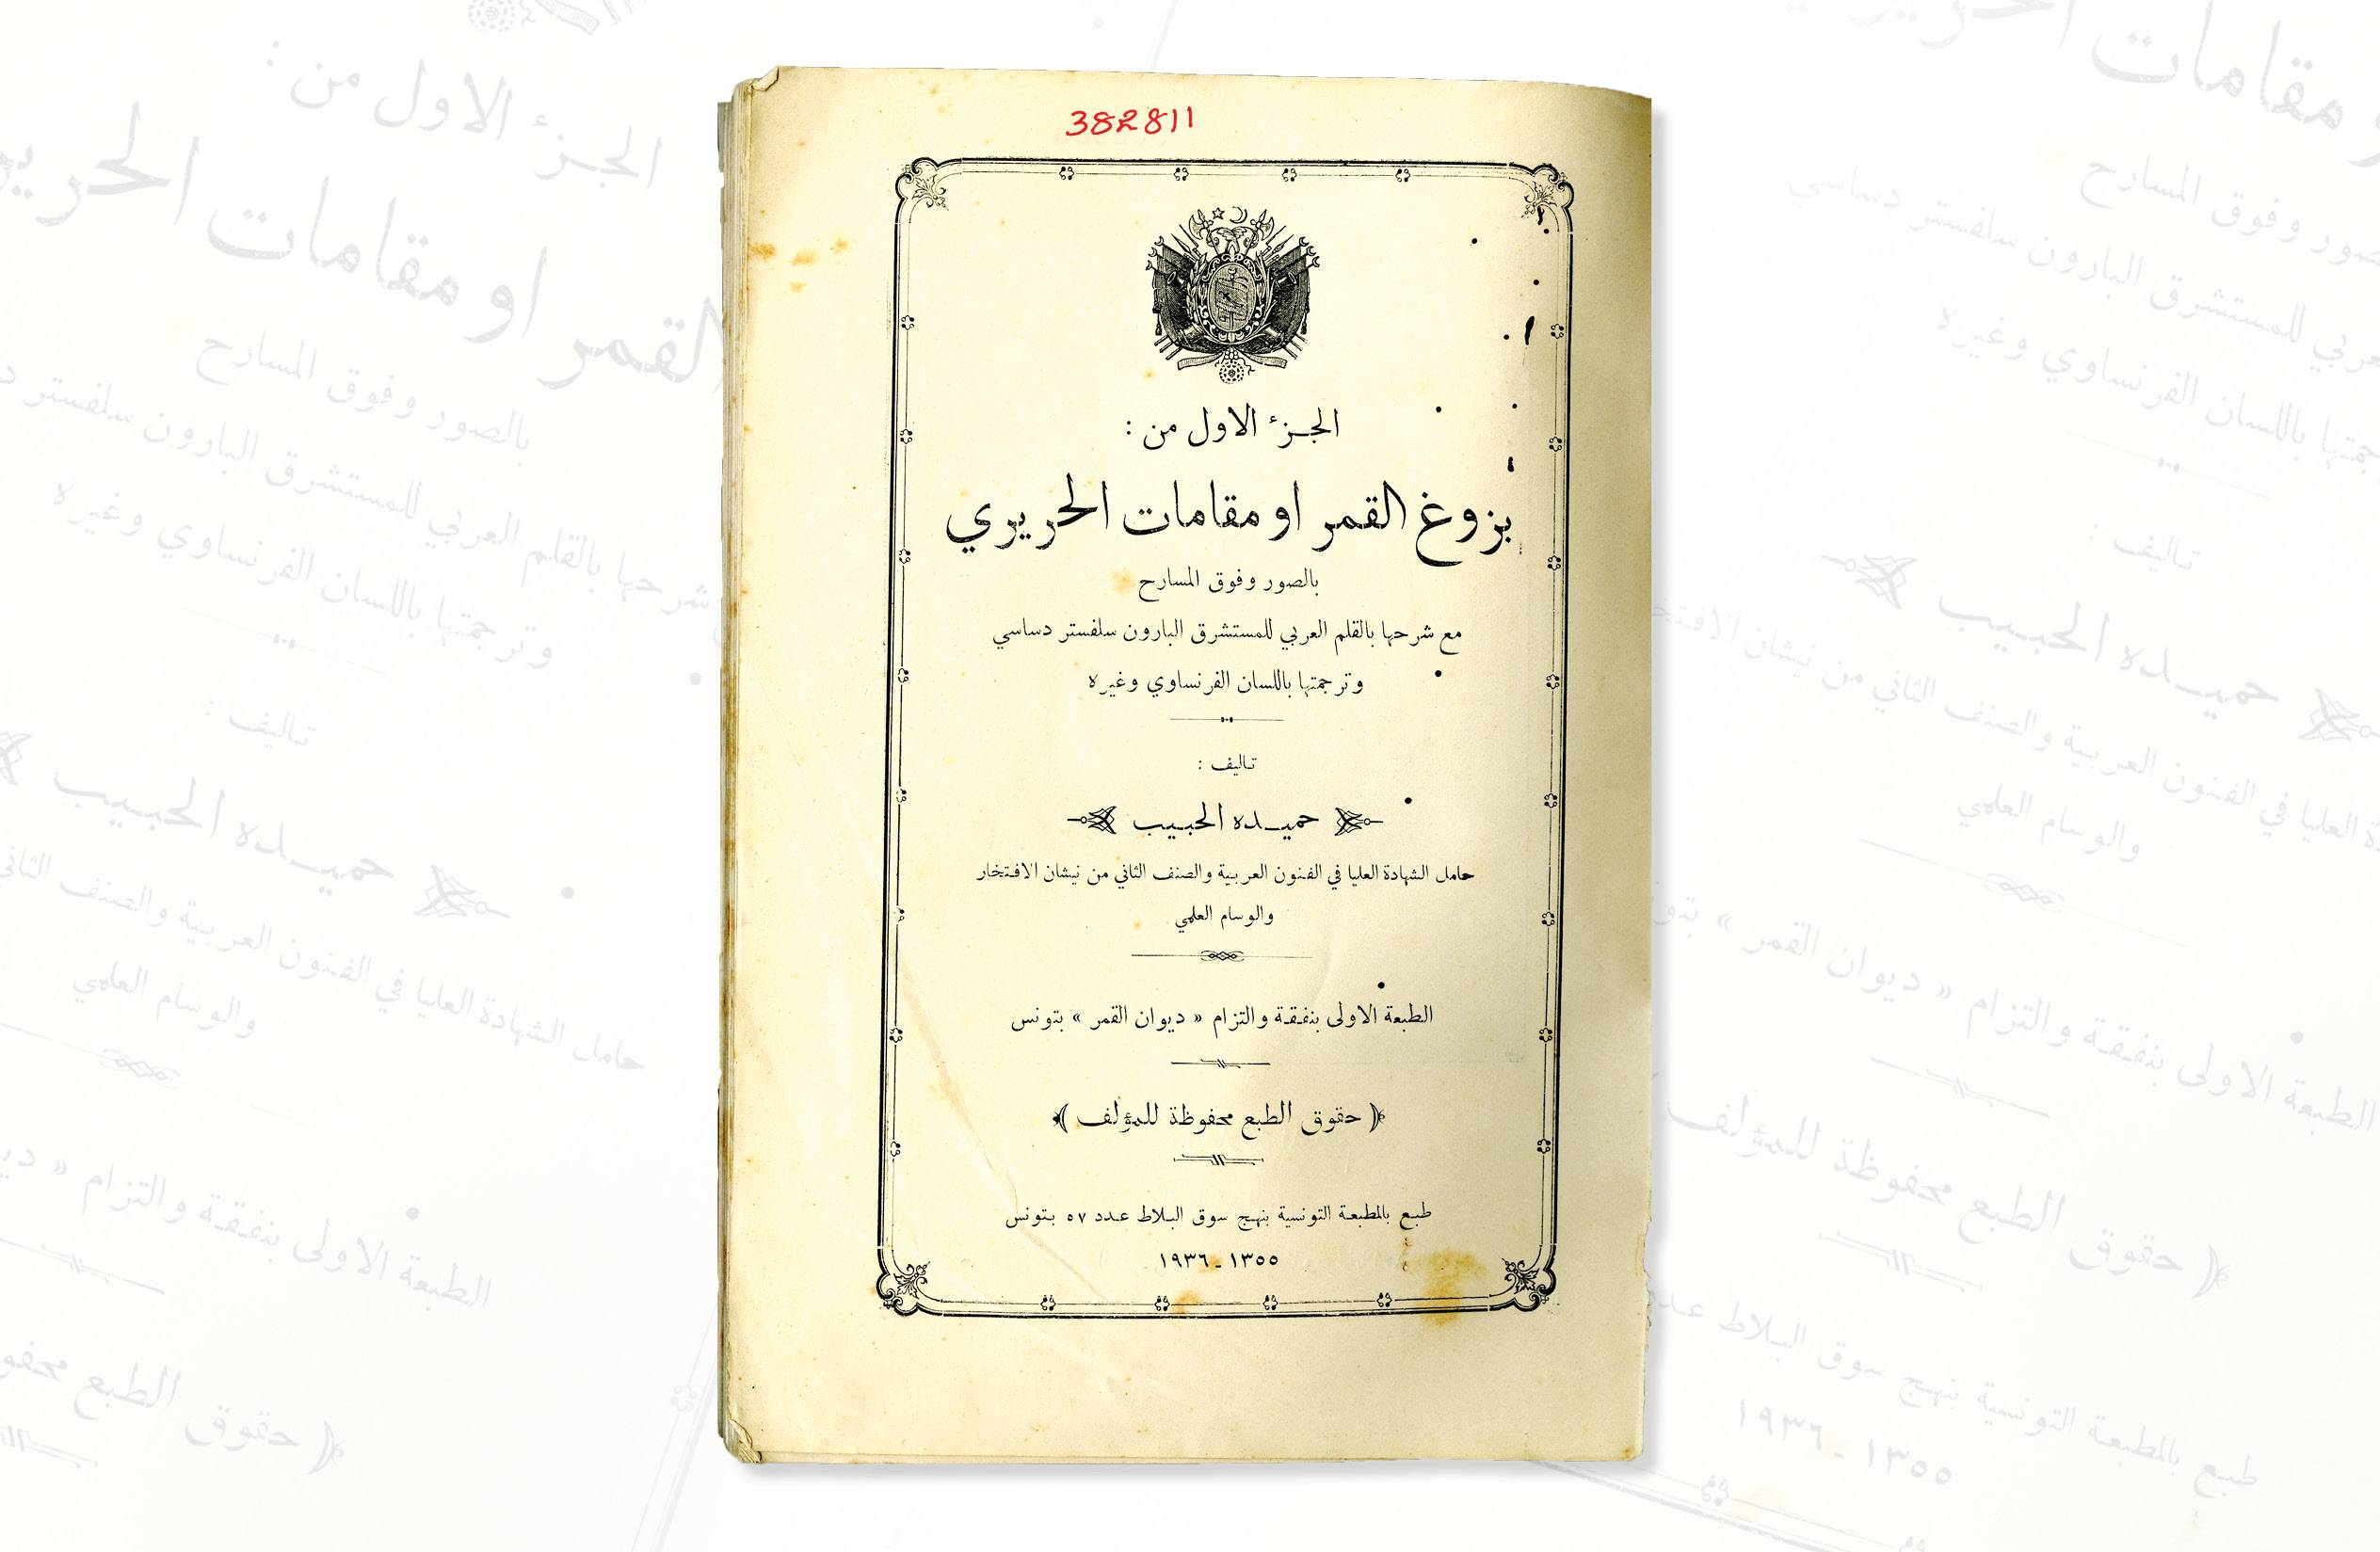 382811
الجزء الاول من :
بزوغ القمر او مقامات الحريري
بالصور وفوق المسارح
مع شرحها بالقلم العربي للمستشرق البارون سلفستر دساسي
وترجمتها باللسان الفرنساوي وغيره
تاليف :
حميده الحبيب
حامل الشهادة العليا في الفنون العربية والصنف الثاني من نيشان الافتخار
والوسام العلمي
الطبعة الاولى بنفقة والتزام « ديوان القمر » بتونس
﴿ حقوق الطبع محفوظة للمؤلف ﴾
طبع بالمطبعة التونسية بنهج سوق البلاط عدد ٥٧ بتونس
١٣٥٥ ـ ١٩٣٦